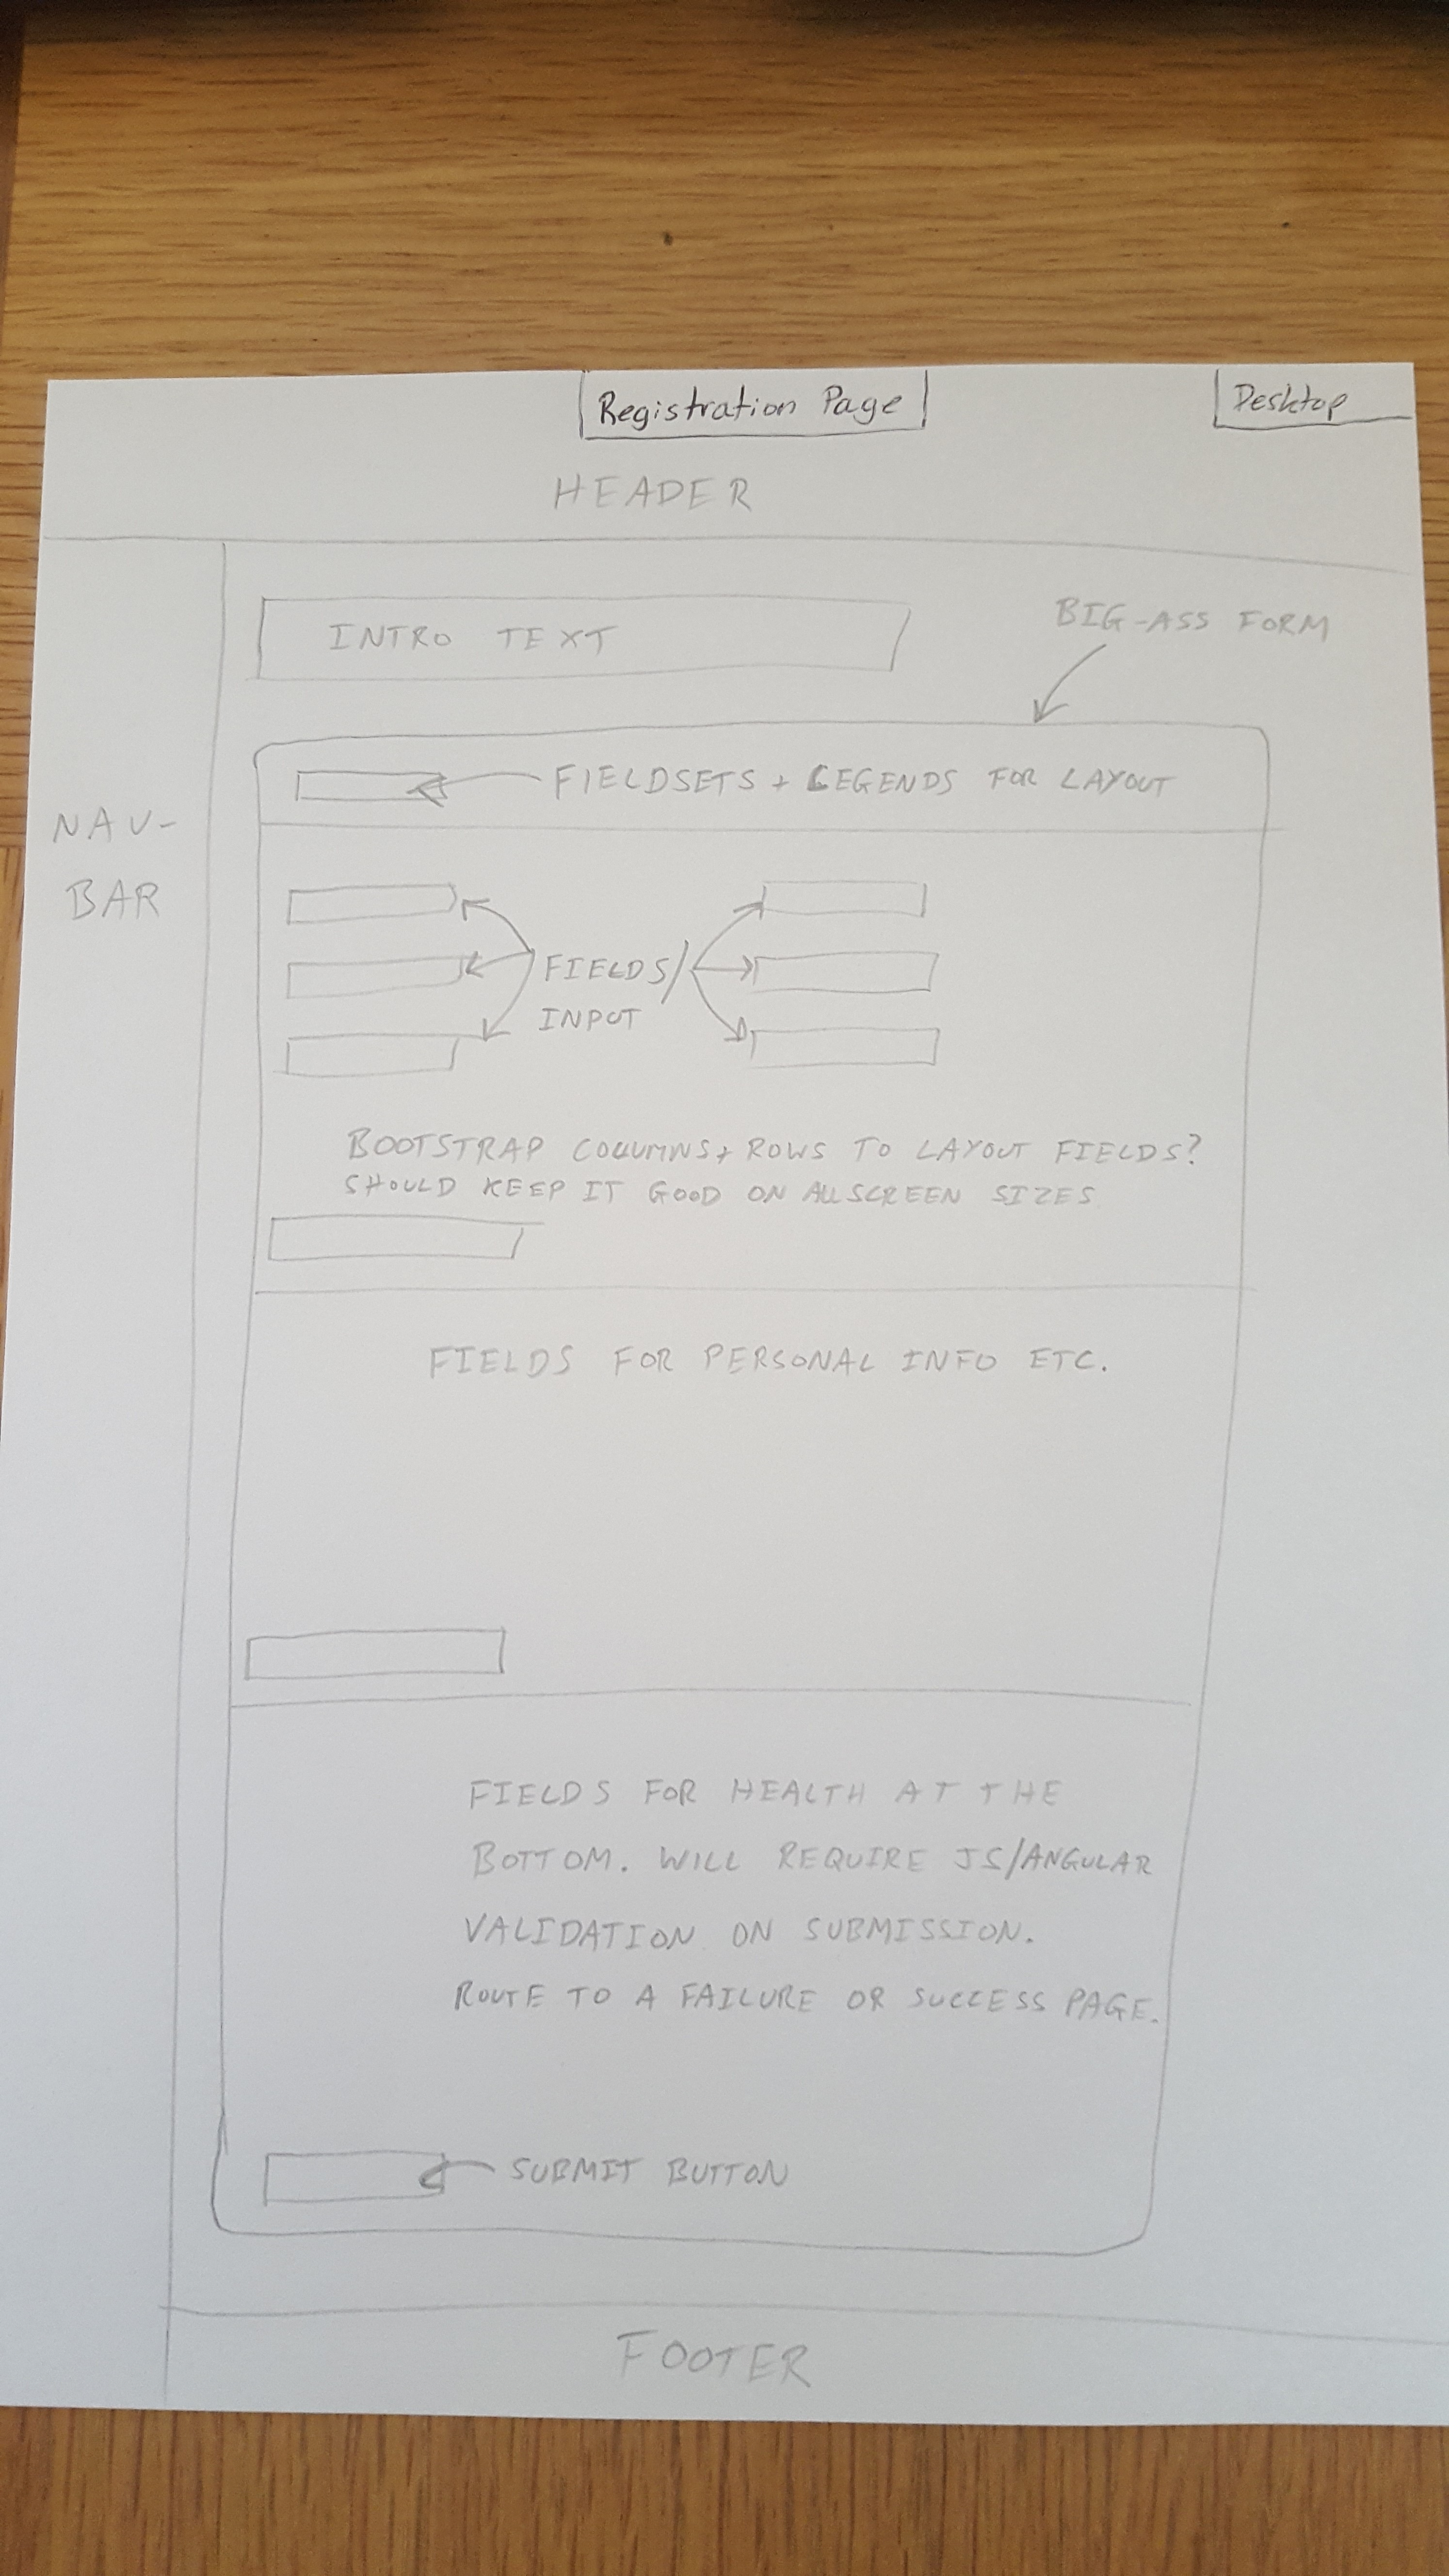 Registration Page
Desktop
HEADER
INTRO TEXT
BIG-ASS FORM
FIELDSETS + LEGENDS FOR LAYOUT
NAV-
BAR
FIELDS/
INPUT
BOOTSTRAP COLUMNS + ROWS TO LAYOUT FIELDS?
SHOULD KEEP IT GOOD ON ALL SCREEN SIZES
FIELDS FOR PERSONAL INFO ETC.
FIELDS FOR HEALTH AT THE
BOTTOM. WILL REQUIRE JS/ANGULAR
VALIDATION ON SUBMISSION.
ROUTE TO A FAILURE OR SUCCESS PAGE.
SUBMIT BUTTON
FOOTER